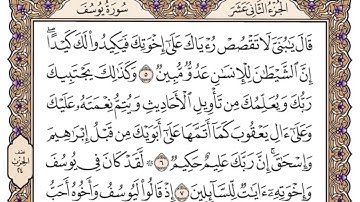 الجزء الثاني عشر
سورة يوسف
قَالَ يَٰبُنَىَّ لَا تَقْصُصْ رُءْيَاكَ عَلَىٰٓ إِخْوَتِكَ فَيَكِيدُوا۟ لَكَ كَيْدًا ۖ
إِنَّ ٱلشَّيْطَٰنَ لِلْإِنسَٰنِ عَدُوٌّ مُّبِينٌ ٥ وَكَذَٰلِكَ يَجْتَبِيكَ
رَبُّكَ وَيُعَلِّمُكَ مِن تَأْوِيلِ ٱلْأَحَادِيثِ وَيُتِمُّ نِعْمَتَهُۥ عَلَيْكَ
وَعَلَىٰٓ ءَالِ يَعْقُوبَ كَمَآ أَتَمَّهَا عَلَىٰٓ أَبَوَيْكَ مِن قَبْلُ إِبْرَٰهِيمَ
وَإِسْحَٰقَ ۚ إِنَّ رَبَّكَ عَلِيمٌ حَكِيمٌ ٦ ۞ لَّقَدْ كَانَ فِى يُوسُفَ
وَإِخْوَتِهِۦٓ ءَايَٰتٌ لِّلسَّآئِلِينَ ٧ إِذْ قَالُوا۟ لَيُوسُفُ وَأَخُوهُ أَحَبُّ
نصف
الحزب
٢٤